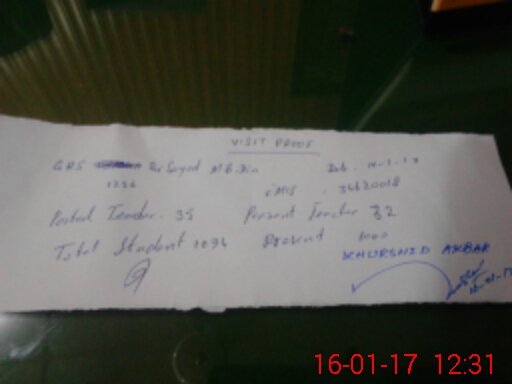 VISIT PROOF
GHS Sayed M R. Din
1036 EMIS : 36620018
Posted Teacher. 35 Present Teacher 32
Total Student 1036 Present 1000
KHURSHID AKBAR
16-01-17
16-01-17 12:31